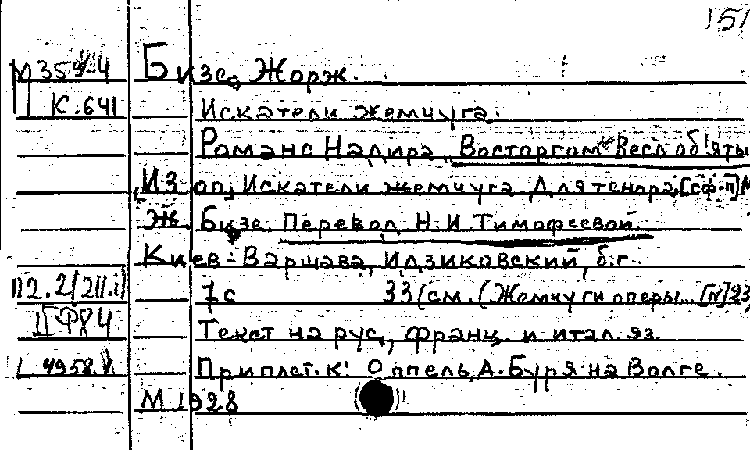 151
М359-4 Бизе, Жорж.
К.641 Искатели жемчуга.
Романс Надира „Восторгом весь объяты
Из оп. Искатели жемчуга. Для тенора [с ф-п] М
Ж. Бизе. Перевод Н. И. Тимофеевой.
Киев-Варшава, Идзиковский, б. г.
П2.2(2II.) 7 с 33 (см. (Жемчуги оперы... [№]23
IIФ84 Текст на рус, франц. и итал. яз.
4958 Приплет. к: Оппель, А. Буря на Волге.
М 1928